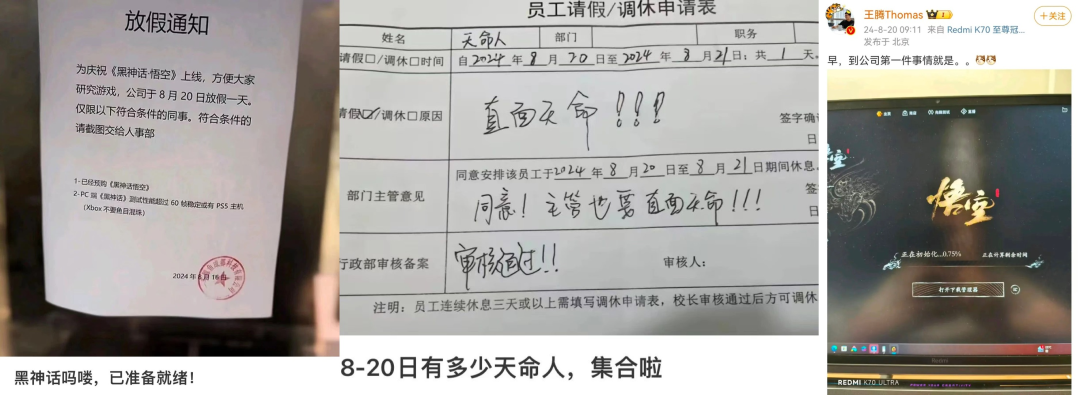 放假通知
为庆祝《黑神话·悟空》上线，方便大家
研究游戏，公司于8月20日放假一天。
仅限以下符合条件的同事。符合条件的
请截图交给人事部
1-已经预购《黑神话·悟空》
2-PC 端《黑神话》测试性能超过 60 帧稳定或有 PS5 主机
（Xbox 不要鱼目混珠）
2024年8月16日
黑神话吗喽，已准备就绪！
员工请假/调休申请表
姓名 天命人 部门 职务
请假□/调休□时间 自2024年8月20日至2024年8月21日；共1天。
请假☑/调休□原因 直面天命！！！
签字确
日
部门主管意见 同意安排该员工于2024年8月20日至8月21日期间休息。
同意！主管也要直面天命！！！
签
日
行政部审核备案 审核通过!! 审核人：
注明：员工连续休息三天或以上需填写调休申请表，校长审核通过后方可调休
8-20日有多少天命人，集合啦
王腾Thomas
+关注
24-8-20 09:11 来自 Redmi K70 至尊冠...
发布于 北京
早，到公司第一件事情就是。。
悟空
正在初始化...0.75% 正在计算剩余时间
打开下载管理器
Redmi
REDMI K70 ULTRA